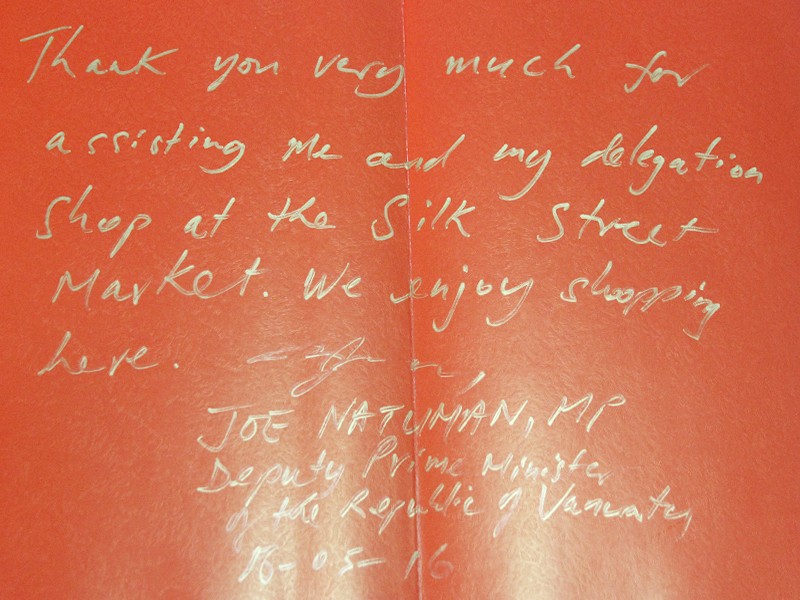 Thank you very much for
assisting me and my delegation
shop at the Silk Street
Market. We enjoy shopping
here.
JOE NATUMAN, MP
Deputy Prime Minister
of the Republic of Vanuatu
16-05-16